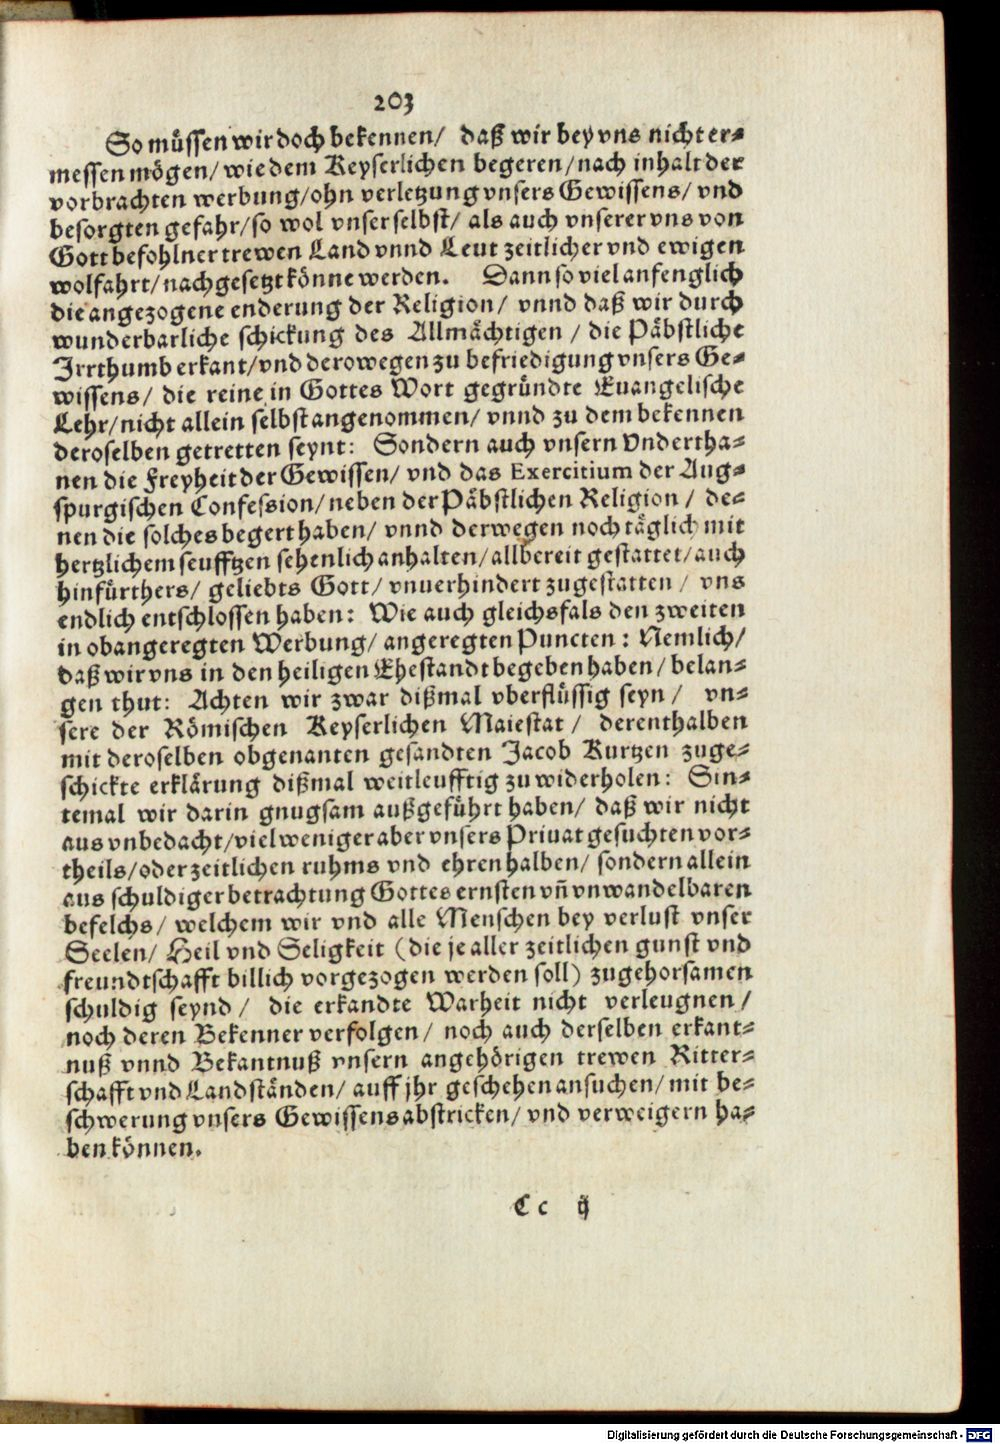 203
So müssen wir doch bekennen/ daß wir bey vns nicht er⸗
messen mögen/ wie dem Keyserlichen begeren/ nach inhalt der
vorbrachten werbung/ ohn verletzung vnsers Gewissens/ vnd
besorgten gefahr/ so wol vnser selbst/ als auch vnserer vns von
Gott befohlner trewen Land vnnd Leut zeitlicher vnd ewigen
wolfahrt/ nachgesetzt könne werden. Dann so viel anfenglich
die angezogene enderung der Religion/ vnnd daß wir durch
wunderbarliche schickung des Allmächtigen/ die Päbstliche
Irrthumb erkant/ vnd derowegen zu befriedigung vnsers Ge⸗
wissens/ die reine in Gottes Wort gegründte Euangelische
Lehr/ nicht allein selbst angenommen/ vnnd zu dem bekennen
deroselben getretten seynt: Sondern auch vnsern Vndertha⸗
nen die Freyheit der Gewissen/ vnd das Exercitium der Aug⸗
spurgischen Confession/ neben der Päbstlichen Religion/ de⸗
nen die solches begert haben/ vnnd derwegen noch täglich mit
hertzlichem seufftzen sehenlich anhalten/ allbereit gestattet/ auch
hinfürthers/ geliebts Gott/ vnuerhindert zugestatten/ vns
endlich entschlossen haben: Wie auch gleichsfals den zweiten
in obangeregten Werbung/ angeregten Puncten: Nemlich/
daß wir vns in den heiligen Ehestandt begeben haben/ belan⸗
gen thut: Achten wir zwar dißmal vberflüssig seyn/ vn⸗
sere der Römischen Keyserlichen Maiestat/ derenthalben
mit deroselben obgenanten gesandten Jacob Kurtzen zuge⸗
schickte erklärung dißmal weitleufftig zu widerholen: Sin⸗
temal wir darin gnugsam außgeführt haben/ daß wir nicht
aus vnbedacht/ viel weniger aber vnsers Priuat gesuchten vor⸗
theils/ oder zeitlichen ruhms vnd ehren halben/ sondern allein
aus schuldiger betrachtung Gottes ernsten vn̄ vnwandelbaren
befelchs/ welchem wir vnd alle Menschen bey verlust vnser
Seelen/ Heil vnd Seligkeit (die je aller zeitlichen gunst vnd
freundtschafft billich vorgezogen werden soll) zugehorsamen
schuldig seynd/ die erkandte Warheit nicht verleugnen/
noch deren Bekenner verfolgen/ noch auch derselben erkant⸗
nuß vnnd Bekantnuß vnsern angehörigen trewen Ritter⸗
schafft vnd Landständen/ auff jhr geschehen ansuchen/ mit be⸗
schwerung vnsers Gewissens abstricken/ vnd verweigern ha⸗
ben können.
Cc ij
Digitalisierung gefördert durch die Deutsche Forschungsgemeinschaft - DFG